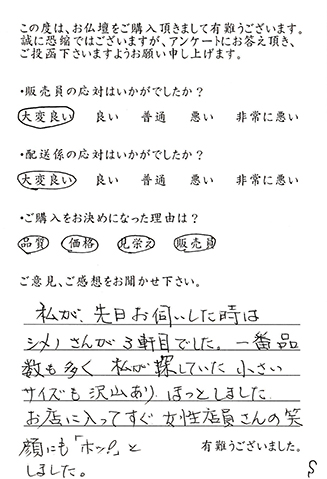 この度は、お仏壇をご購入頂きまして有難うございます。
誠に恐縮ではございますが、アンケートにお答え頂き、
ご投函下さいますようお願い申し上げます。
・販売員の応対はいかがでしたか？
大変良い 良い 普通 悪い 非常に悪い
・配送係の応対はいかがでしたか？
大変良い 良い 普通 悪い 非常に悪い
・ご購入をお決めになった理由は？
品質 価格 見栄え 販売員
ご意見、ご感想をお聞かせ下さい。
私が、先日お伺いした時は
シメノさんが3軒目でした。一番品
数も多く 私が探していた 小さい
サイズも 沢山あり ほっとしました
お店に入ってすぐ 女性店員さんの笑
顔にも「ホッ」と 有難うございました。
しました。